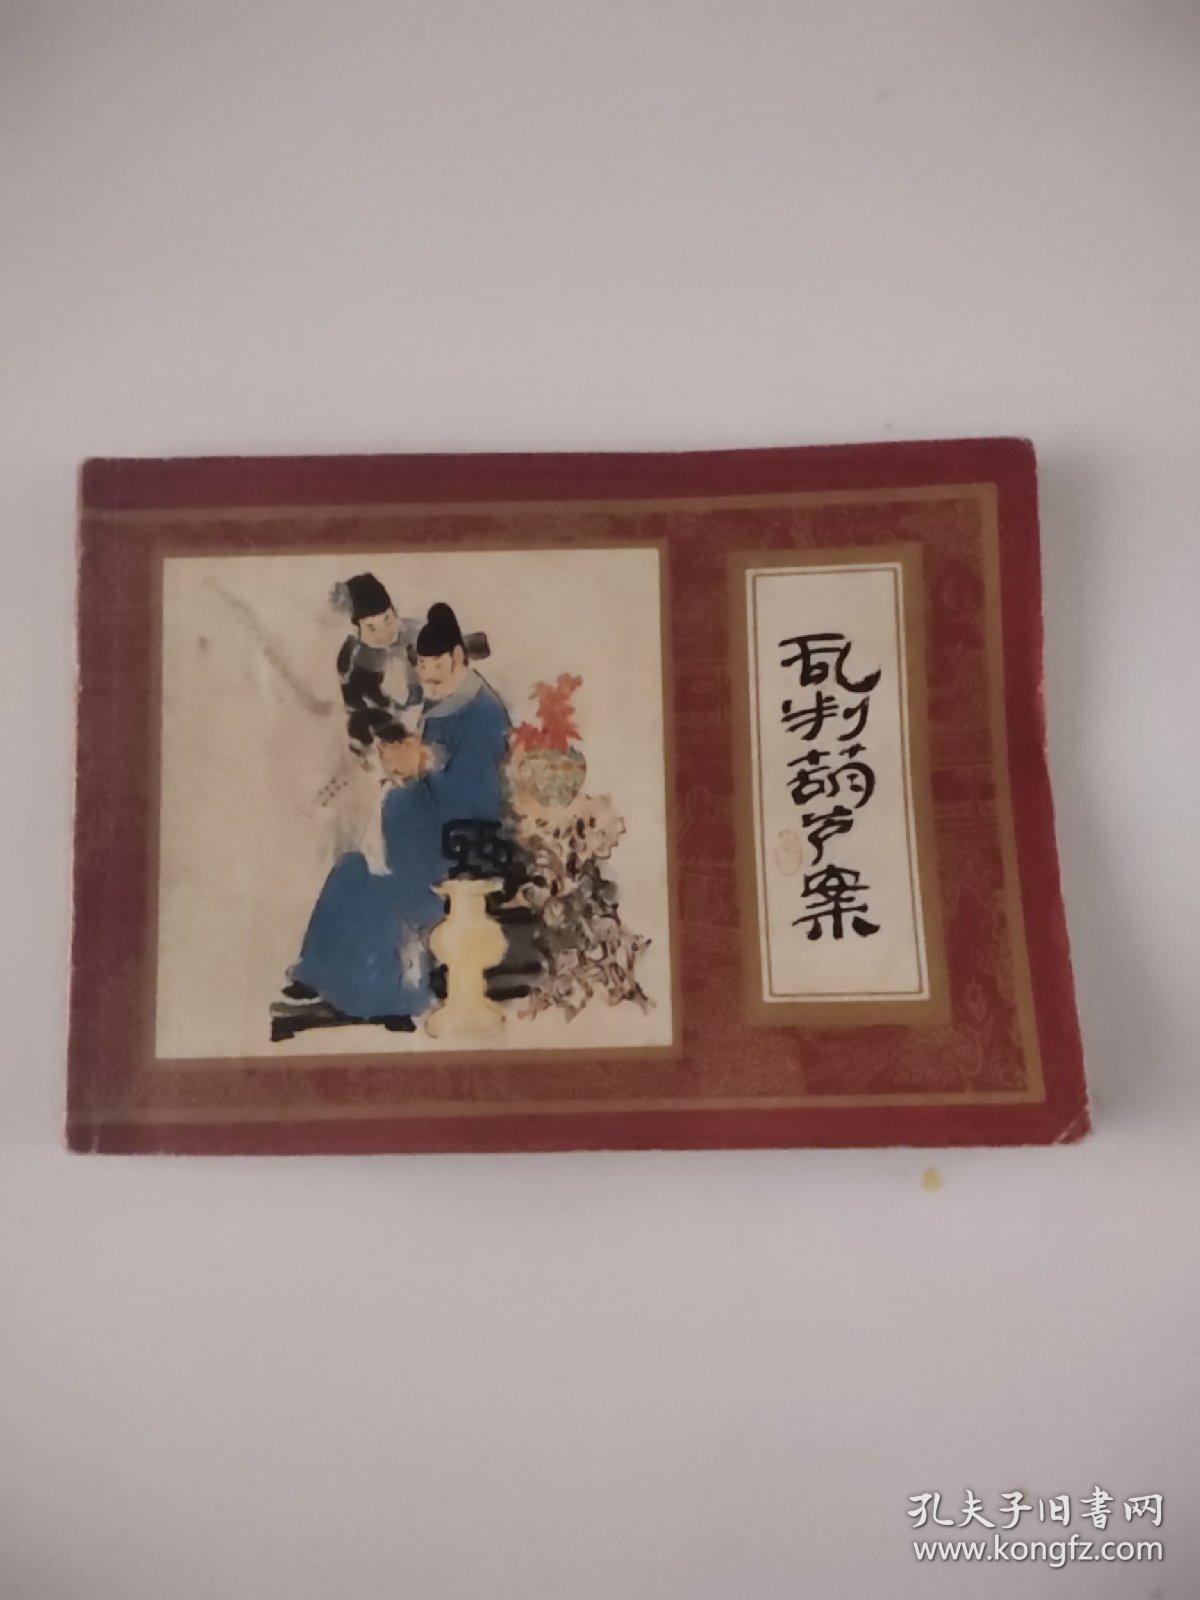 乱判葫芦案
孔夫子旧书网
www.kongfz.com